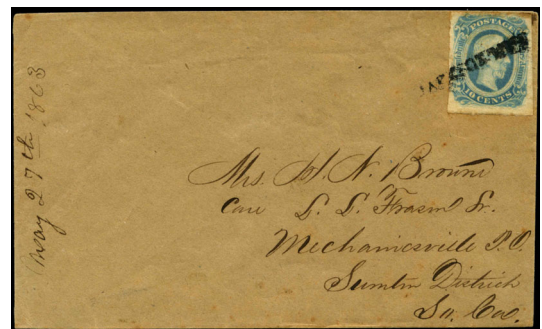 POSTAGE
10 CENTS
May 27th 1863
Mrs. H. N. Browne
Care L. L. Fraser Sr.
Mechanicsville P.O.
Sumter District
So. Ca.